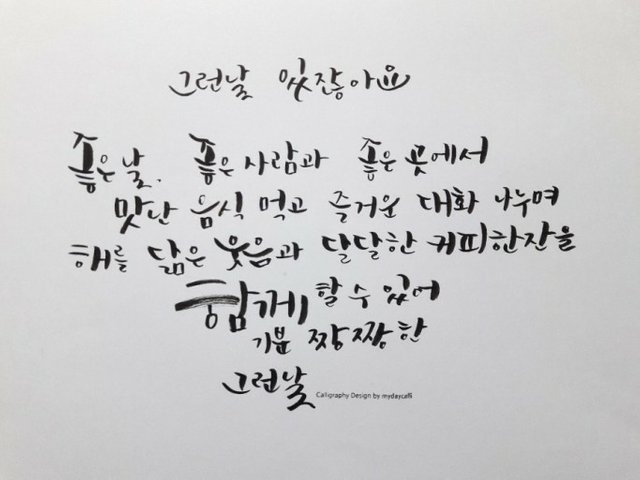 그런날 있잖아요
좋은날. 좋은 사람과 좋은 곳에서
맛난 음식 먹고 즐거운 대화 나누며
해를 닮은 웃음과 달달한 커피한잔을
함께 할 수 있어
기분 짱짱한
그런날
Calligraphy Design by mydaycalli